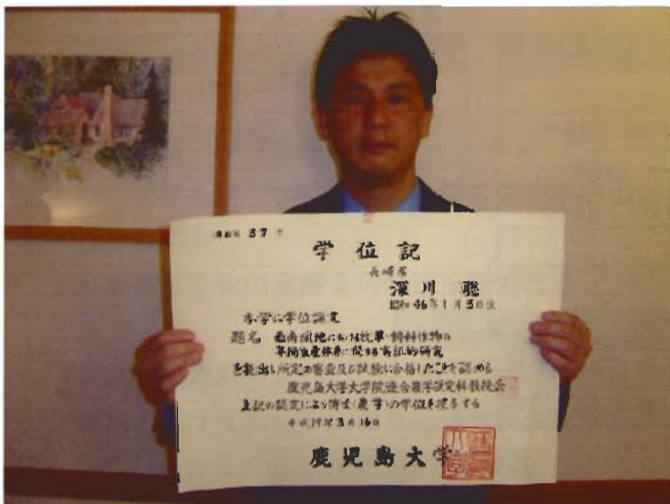 第57号
学位記
長崎県
深川聡
昭和46年1月5日生
本学に学位論文
題名 西南暖地における牧草・飼料作物の
年間生産体系に関する実証的研究
を提出し所定の審査及び試験に合格したことを認める
鹿児島大学大学院連合農学研究科教授会
上記の認定により博士(農学)の学位を授与する
平成19年3月16日
鹿児島大学